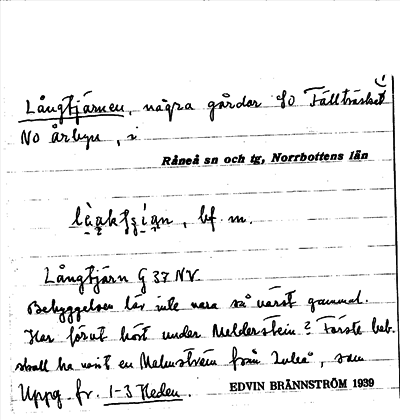 Långtjärnen, några gårdar SO Fällträsket
NO årbyn, i
Råneå sn och tg, Norrbottens län
bf. m.
Långtjärn G 37 NV.
Bebyggelsen lär inte vara så värst gammal.
Har förut hört under Melderstein? Förste beb.
skall ha varit en Malmström från Luleå, som
Uppg. fr. 1-3 Heden.
EDVIN BRÄNNSTRÖM 1939